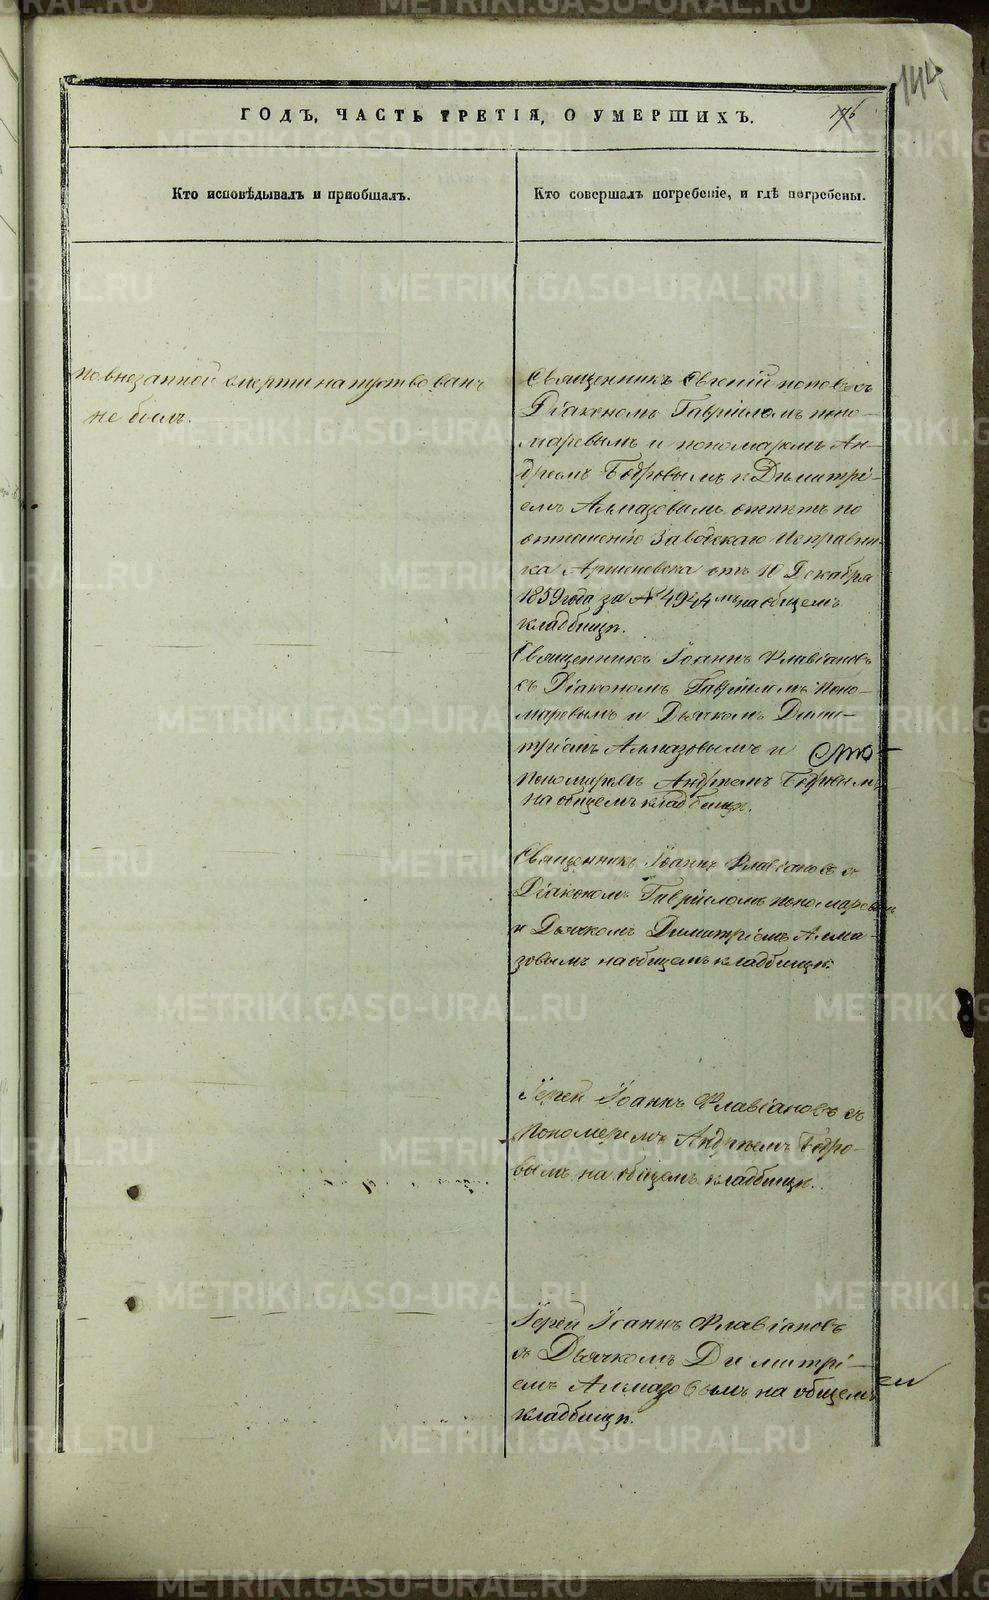 144
ГОДЪ, ЧАСТЬ ТРЕТІЯ, О УМЕРШИХЪ.
176
Кто исповѣдывалъ и приобщалъ.
Кто совершалъ погребеніе, и гдѣ погребены.
по внезапной смерти напутствованъ
не былъ.
Священникъ Евгеній Поповъ съ
Діакономъ Гавріиломъ Поно-
маревымъ и пономаремъ Ан-
дреемъ Бодровымъ и Димитрі-
емъ Алмазовымъ отпѣтъ по
отношенію Заводскаго Исправни-
ка отъ 10 Декабря
1859 года за № 4944 мъ на общемъ
кладбищѣ.
Священникъ Іоаннъ Флавіановъ
съ Діакономъ Гавріиломъ Поно-
маревымъ и Дьячкомъ Дими-
тріемъ Алмазовымъ и
Пономаремъ Андреемъ Бодровымъ
на общемъ кладбищѣ.
Священникъ Іоаннъ Флавіановъ съ
Діакономъ Гавріиломъ Пономаревым
и Дьячкомъ Димитріемъ Алма-
зовымъ на общемъ кладбищѣ.
Іерей Іоаннъ Флавіановъ съ
Пономаремъ Андреемъ Бодро-
вымъ на общемъ кладбищѣ.
Іерей Іоаннъ Флавіановъ
съ Дьячкомъ Димитрі-
емъ Алмазовымъ на общемъ
кладбищѣ.
METRIKI.GASO-URAL.RU